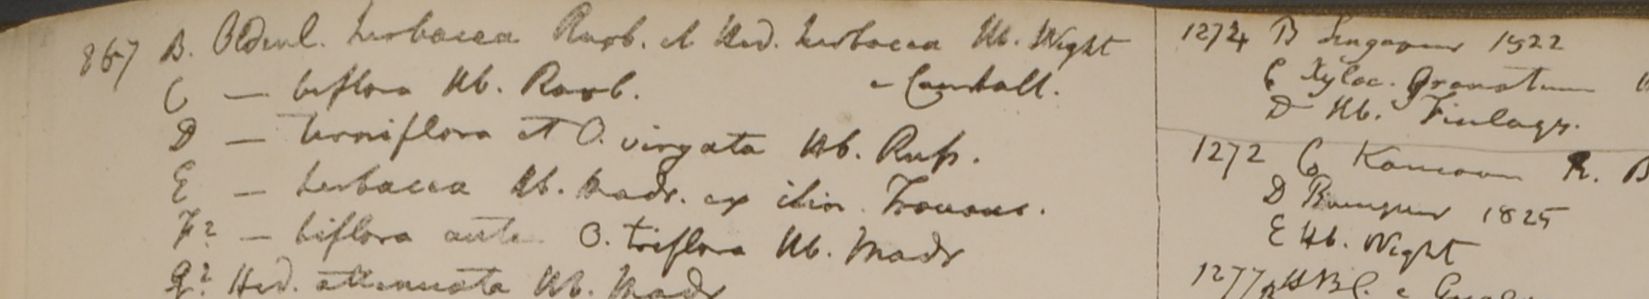 867 B. Oldenl. herbacea Roxb. et Hed. herbacea Hb. Wight
C — biflora Hb. Roxb.
D — terniflora et O. virgata Hb. Russ.
E — herbacea Hb. Madr. ex itin.
F? — biflora O. triflora Hb. Madr
G? Hed. attenuata Hb. Madr
1274 B Singapour 1822
C Xyloc. Granatum
D Hb. Finlays.
1272 C R. B
D 1825
E Hb. Wight
1277